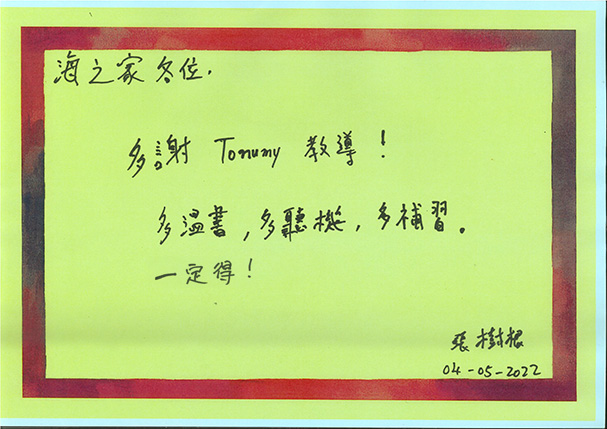 海之家各位.
多謝 Tommy 教導!
多温書,多聽機,多補習。
一定得!
張樹根
04-05-2022